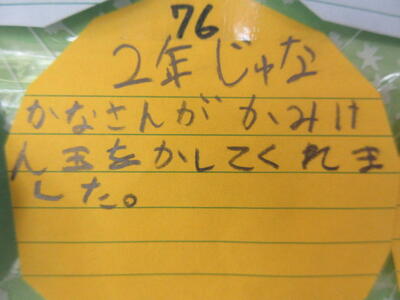 76
2年じゅな
かなさんが かみけ
ん玉をかしてくれま
した。